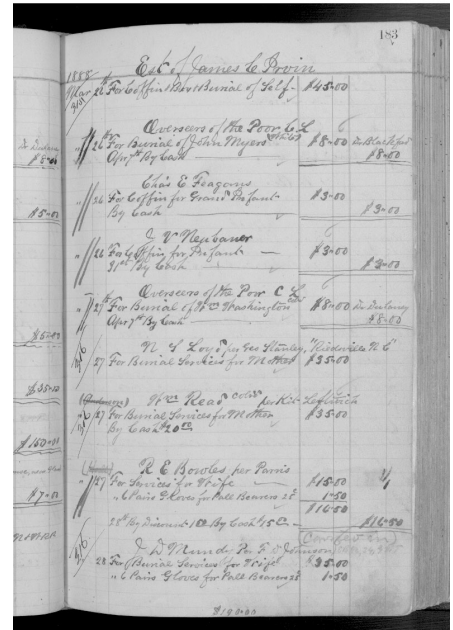 183
Est. of James C Irvin
1888
Mar 26 For Coffin & Burial of Self - $45-00
Overseers of the Poor C L
26 For Burial of John Myers $8-00 Dr Blackford
Apr 7th By Cash $8-00
Chas E Feagans
26 For Coffin for Grand Infant $3-00
By Cash $3-00
J V Neubaner
26 For Coffin for Infant $3-00
31st By Cash $3-00
Overseers of the Poor C L
27th For Burial of Wm Washington $8-00 Dr Dulaney
Apr 7th By Cash $8-00
N S Love per Geo Stanley, "Reidsville N C"
27 For Burial Services for Mother $35-00
Wm Read Cold per Kit Leftwich
27 For Burial Services for Mother $35-00
By Cash $20 00
R E Bowles, per Parris
27 For Services for Wife $15-00
" 6 Pairs Gloves for Pall Bearers 25 1-50
$16-50
28th By Discount 1 50 By Cash $15 00 $16-50
J W Mundy Per F Johnson
28 For Burial Services for Wife $35-00
" 6 Pairs Gloves for Pall Bearers 25 1-50
$5-00
$35-00
$150-00
$7-00